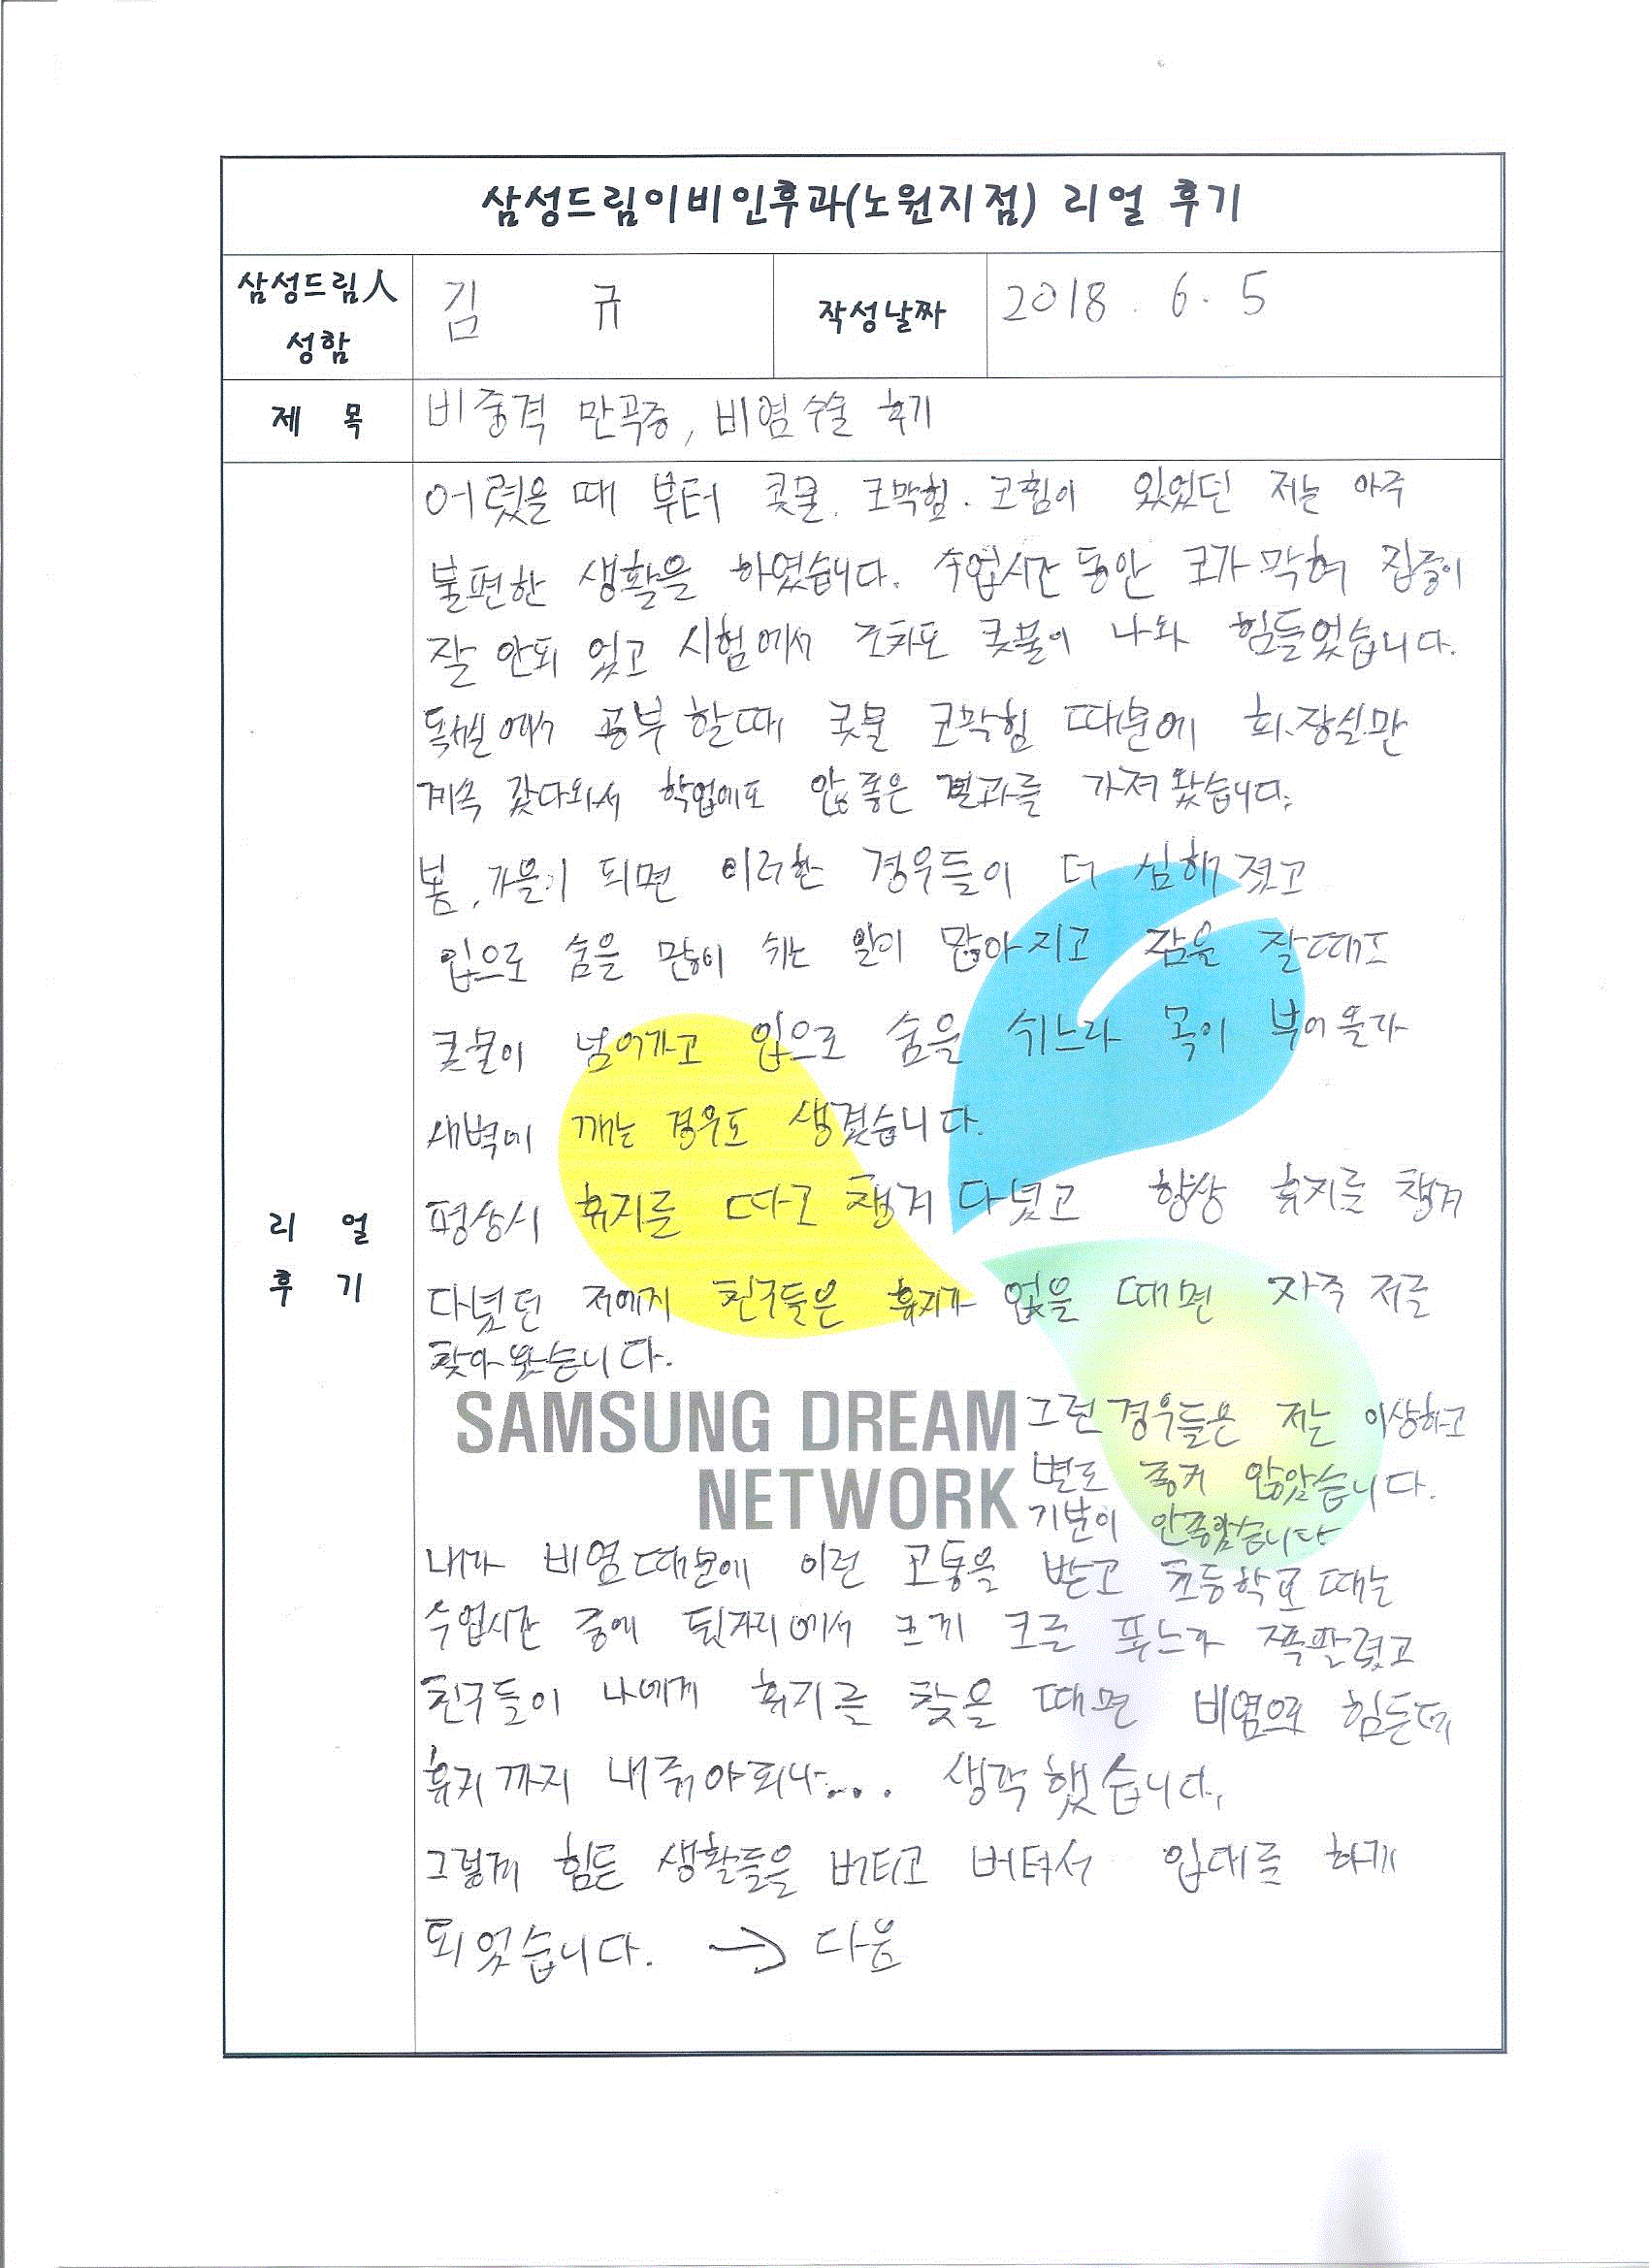 삼성드림이비인후과(노원지점) 리얼 후기
삼성드림人 성함
김 규
작성날짜
2018. 6. 5
제 목
비중격 만곡증, 비염수술 후기
리 얼
후 기
어렸을 때 부터 콧물, 코막힘. 코힘이 있었던 저는 아주
불편한 생활을 하였습니다. 수업시간 동안 코가 막혀 집중이
잘 안되 었고 시험에서 조차도 콧물이 나와 힘들었습니다.
독서실에서 공부 할때 콧물 코막힘 때문에 화장실만
계속 갔다와서 학업에도 안좋은 결과를 가져 왔습니다.
봄, 가을이 되면 이러한 경우들이 더 심해 졌고
입으로 숨을 많이 쉬는 일이 많아 지고 잠을 잘때도
콧물이 넘어가고 입으로 숨을 쉬느라 목이 부어 올라
새벽에 깨는 경우도 생겼습니다.
평상시 휴지를 따로 챙겨 다녔고 항상 휴지를 챙겨
다녔던 저에게 친구들은 휴지가 없을 때면 자주 저를
찾아 왔습니다.
SAMSUNG DREAM
NETWORK
그런 경우들은 저는 이상하고
별로 좋거 않았습니다.
기분이 안좋았습니다
내가 비염때문에 이런 고통을 받고 초등학교 때는
수업시간 중에 뒷자리에서 크게 코를 푸느라 쪽팔렸고
친구들이 나에게 휴지를 찾을 때면 비염으로 힘든데
휴지까지 내줘야되나.... 생각했습니다.
그렇게 힘든 생활들을 버티고 버텨서 입대를 하게
되었습니다. → 다음